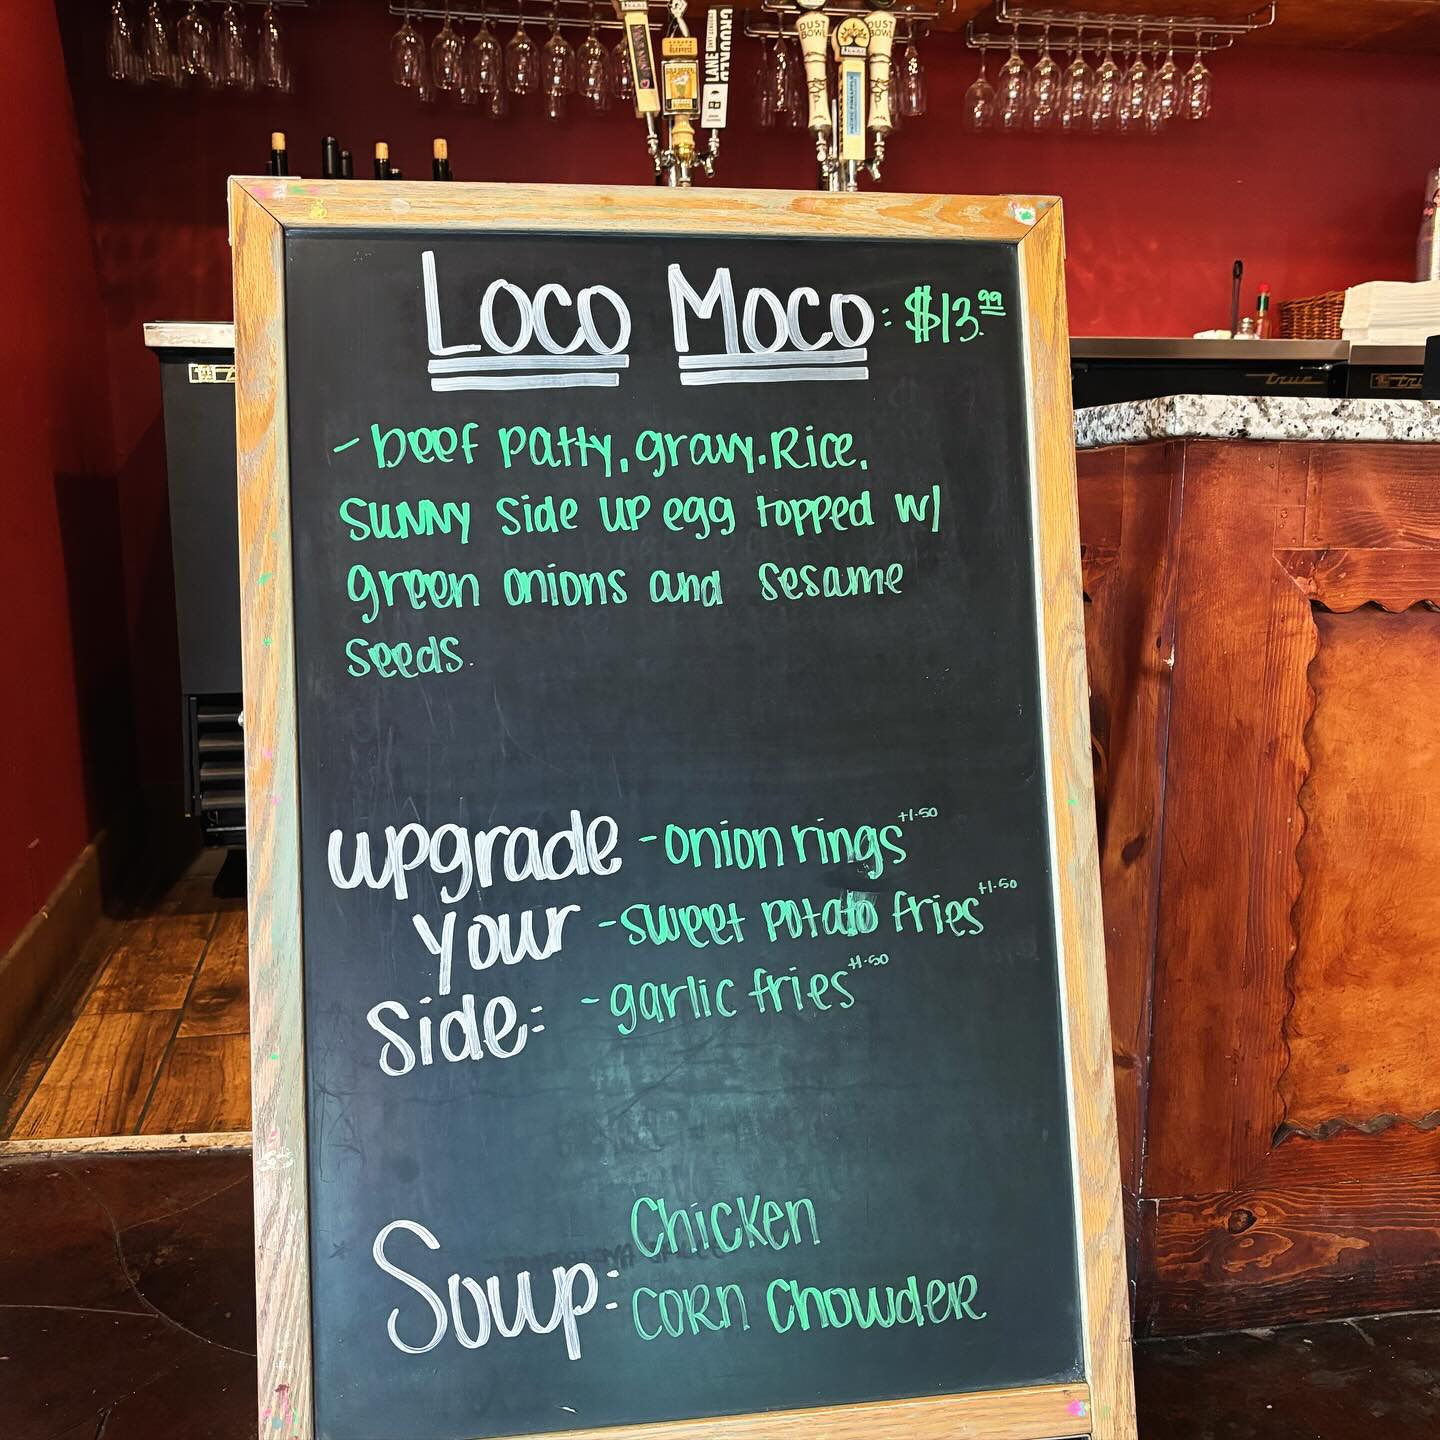 DUST
BOWL
DUST
BOWL
LANE
CROOKED
PACIFIC PINEAPPLE
LOCO MOCO: $13.99
- beef patty, gravy. Rice,
sunny side up egg topped w/
green onions and sesame
seeds.
true
upgrade - onion rings +1.50
your - sweet potato fries +1.50
side: - garlic fries +1.50
Soup: Chicken
corn chowder